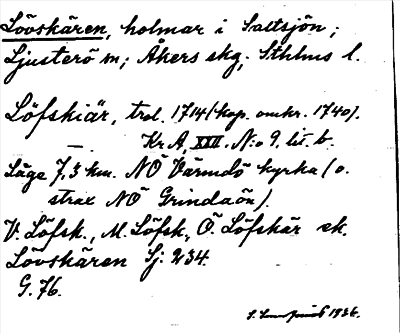 Lövskären, holmar i Saltsjön;
Ljusterö sn; Åkers skg, Sthlms l.
Löfskiär, trol. 1714 (kop. omkr. 1740).
— Kr A, XXII. N:o 9. lit. b.
Läge 7,3 km. NÖ Värmdö kyrka (o.
strax NÖ Grindaön).
V. Löfsk., M. Löfsk., Ö. Löfskär ek.
Lövskären Sj: 234.
G. 76.
1936.